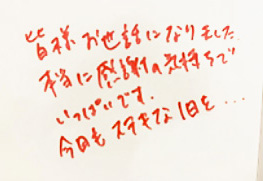 皆様お世話になりました
本当に感謝の気持ちで
いっぱいです.
今日もステキな1日を...